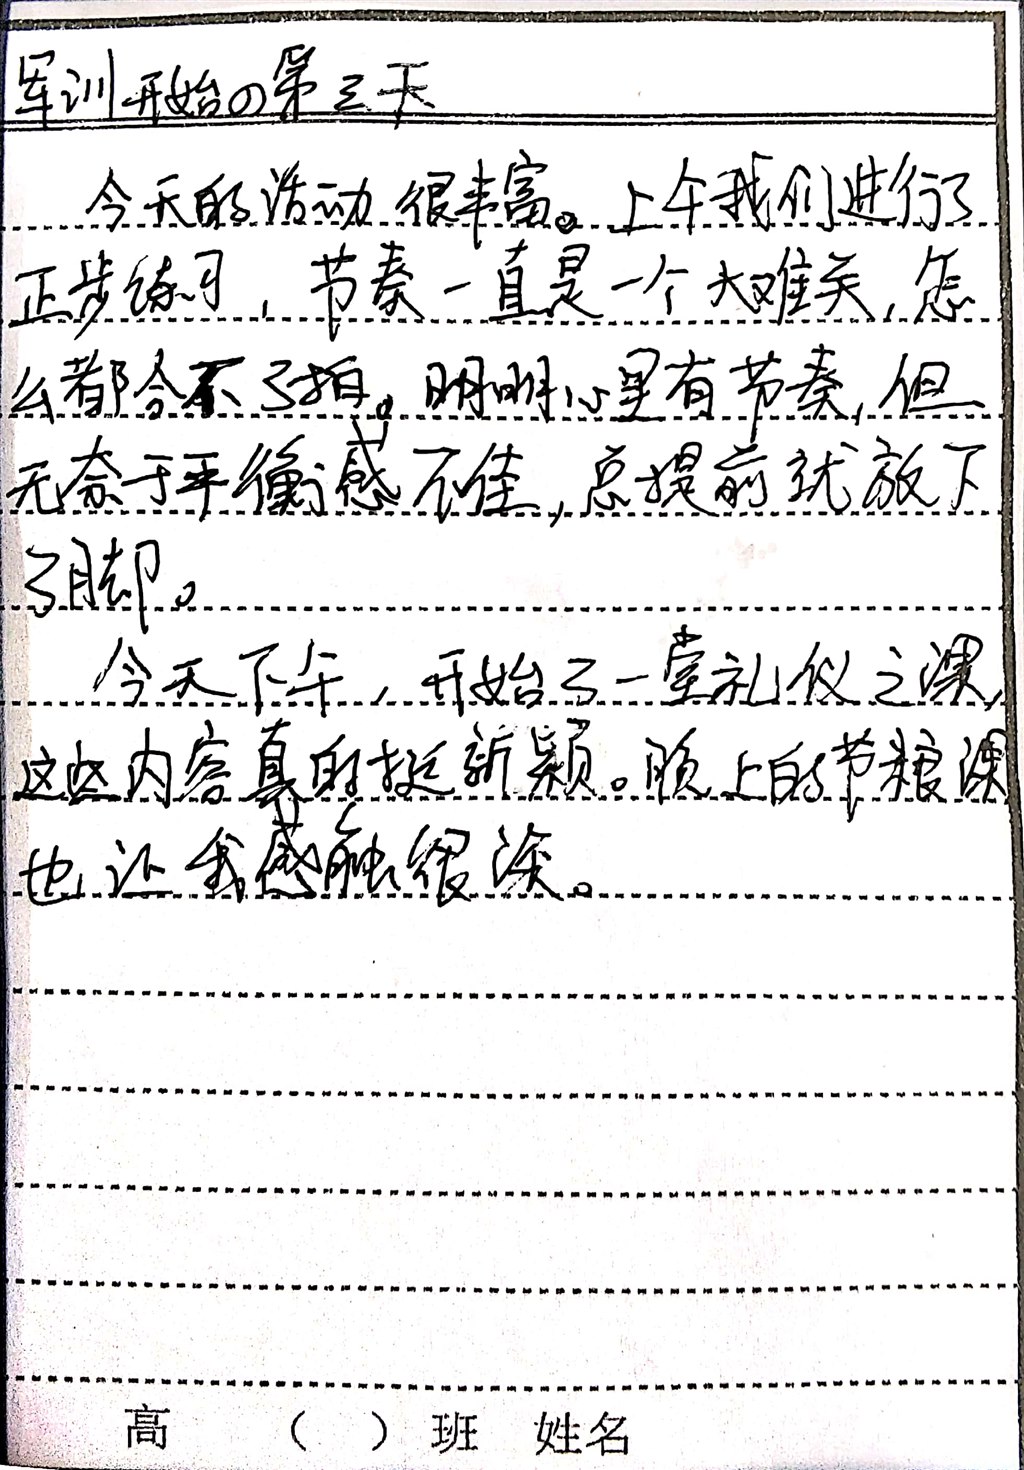 军训开始の第三天
今天的活动很丰富。上午我们进行了
正步练习，节奏一直是一个大难关，怎
么都合不了拍。明明心里有节奏，但
无奈于平衡感不佳，总提前就放下
了脚。
今天下午，开始了一堂礼仪之课，
这些内容真的挺新颖。晚上的节粮课
也让我感触很深。
高 （ ）班 姓名